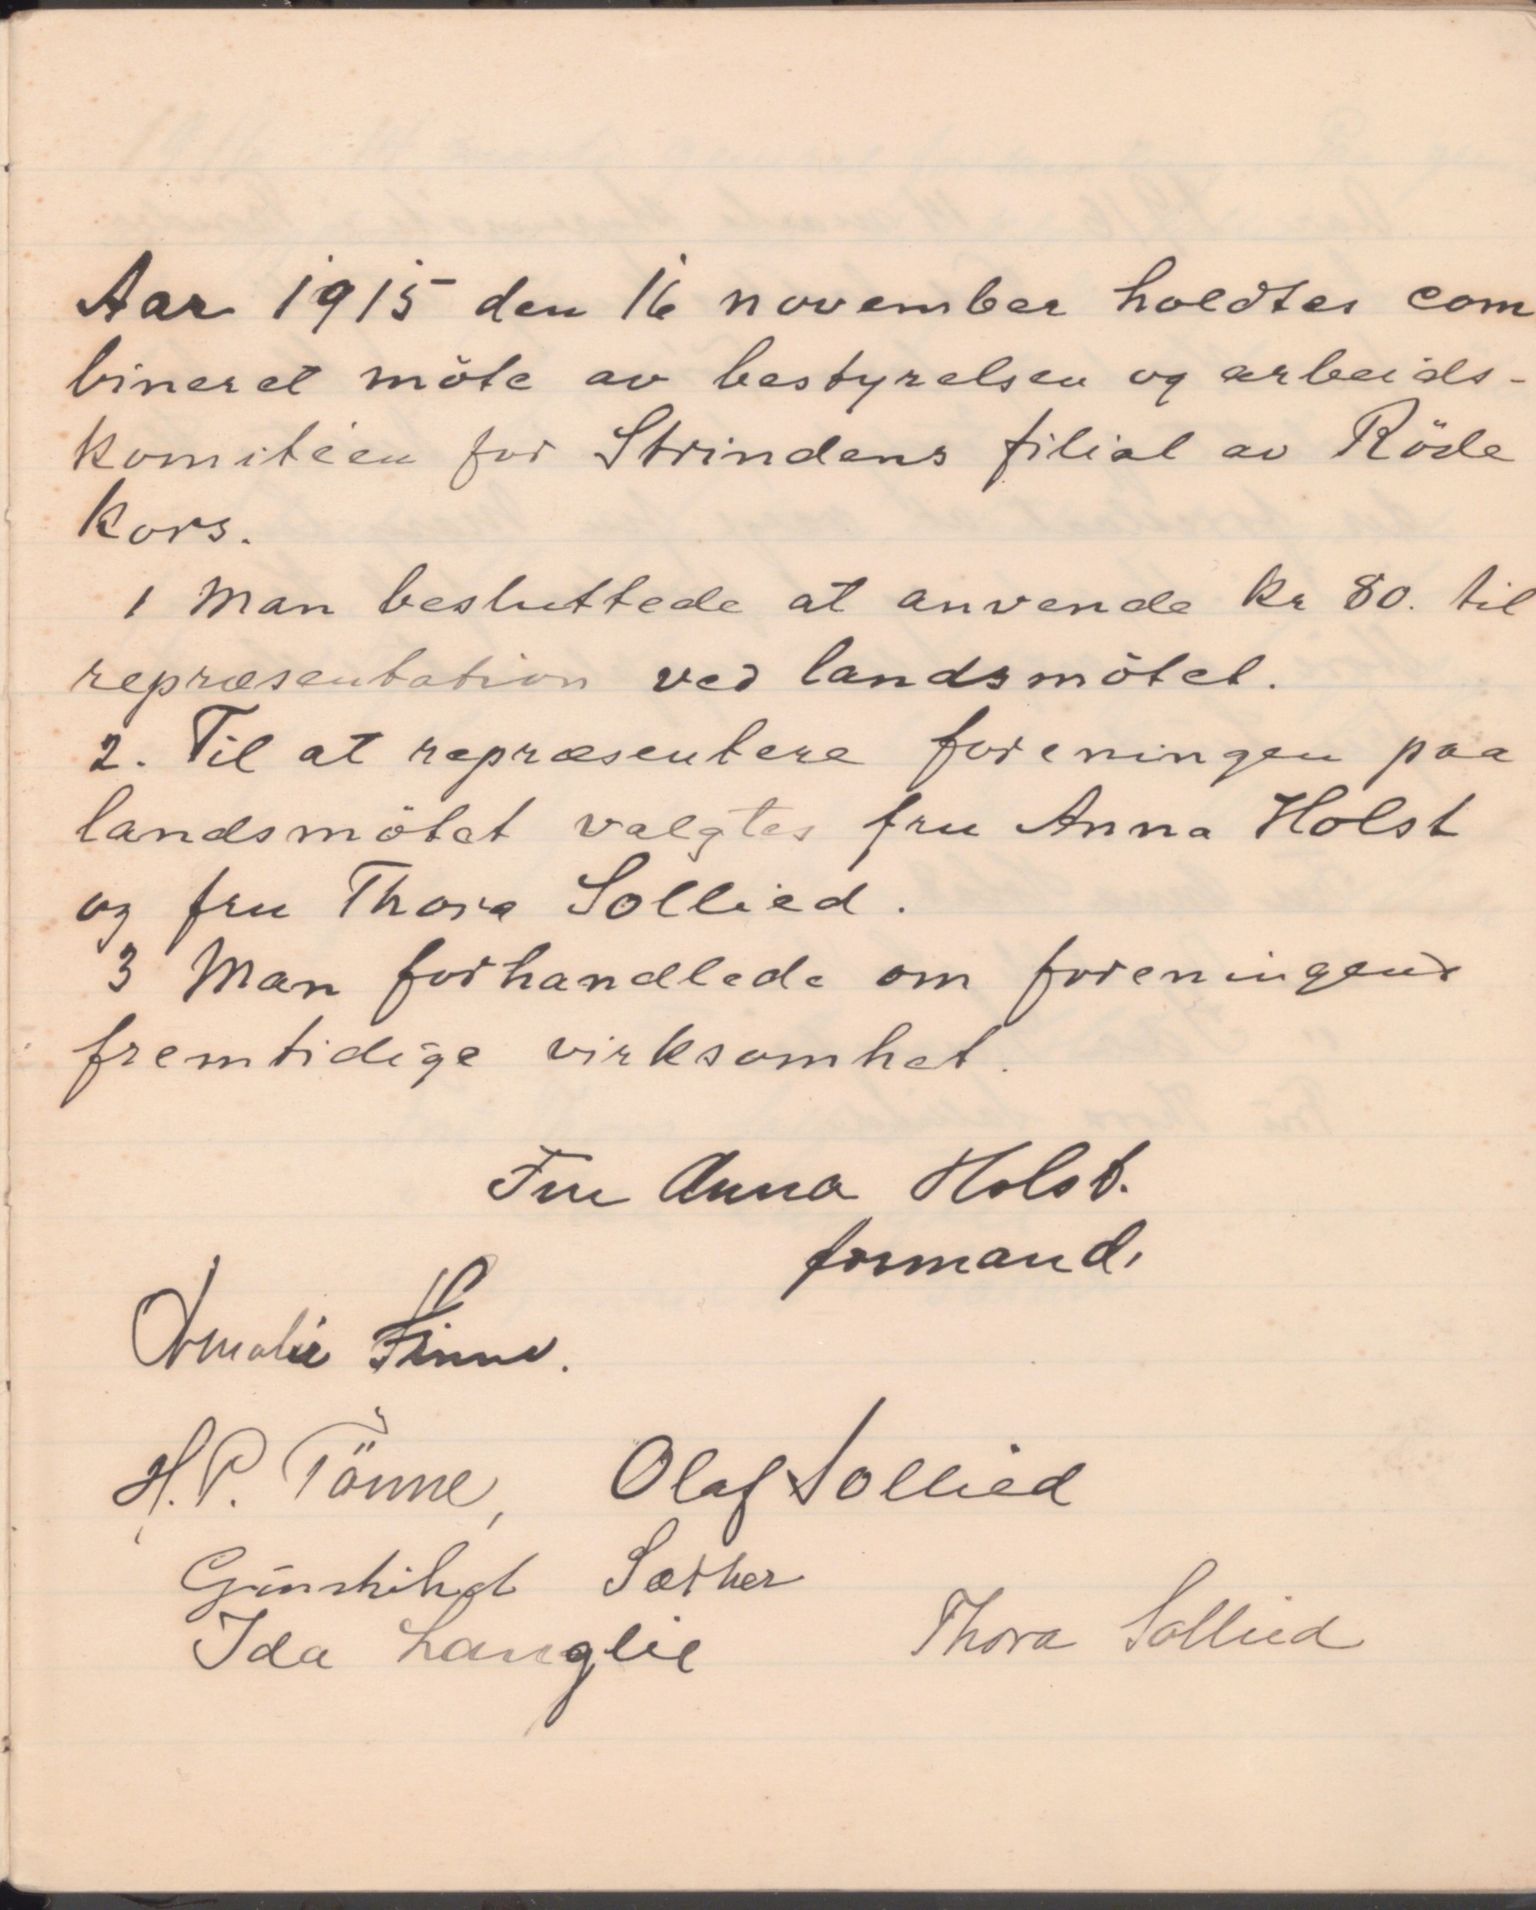 Aar 1915 den 16 november holdtes com
bineret möte av bestyrelsen og arbeids-
komitéen for Strindens filial av Röde
Kors.
1 Man besluttede at anvende kr 80. til
repræsentation ved landsmötet.
2. Til at repræsentere foreningen paa
landsmötet valgtes fru Anna Holst
og fru Thora Sollied.
3 Man forhandlede om foreningens
fremtidige virksomhet.
Fru Anna Holst.
formand.
Amalie Finne.
H. P. Tönne, Olaf Sollied
Sæther
Ida Langlie Thora Sollied